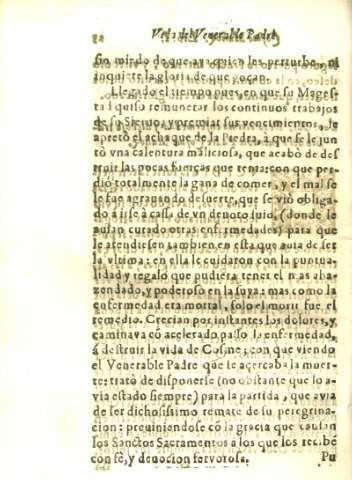 82 Vida del Venerable Padre
sin miedo de que aya quien les perturbe, ni
inquiete la gloria de que gozan.
Llegado el tiempo pues, en que su Mages-
tad quiso remunerar los continuos trabajos
de su Siervo, y premiar sus vencimientos, le
apretò el achaque de la Piedra, à que se le jun
tò vna calentura maliciosa, que acabò de des
truir las pocas fuerças que tenia: con que per-
diò totalmente la gana de comer, y el mal se
le fue agrauando de suerte, que se viò obliga-
do á irse à casa de vn deuoto suio, (donde le
auian curado otras enfermedades) para que
le atendiesen tambien en esta que auia de ser
la vltima: en ella le cuidaron con la puntua-
lidad y regalo que pudiera tener el mas aha-
zendado, y poderoso en la suya: mas como la
enfermedad era mortal, solo el morir fue el
remedio. Crecian por instantes los dolores, y
caminava cõ acelerado passo la enfermedad,
á destruir la vida de Cosme; con que viendo
el Venerable Padre que se açercaba la muer-
te: tratò de disponerse (no obstante que lo a-
via estado siempre) para la partida, que avia
de ser dichosissimo remate de su peregrina-
cion: previniendose cõ la gracia que causan
los Sanctos Sacramentos a los que los recibẽ
con fê, y deuocion fervorosa. Pu